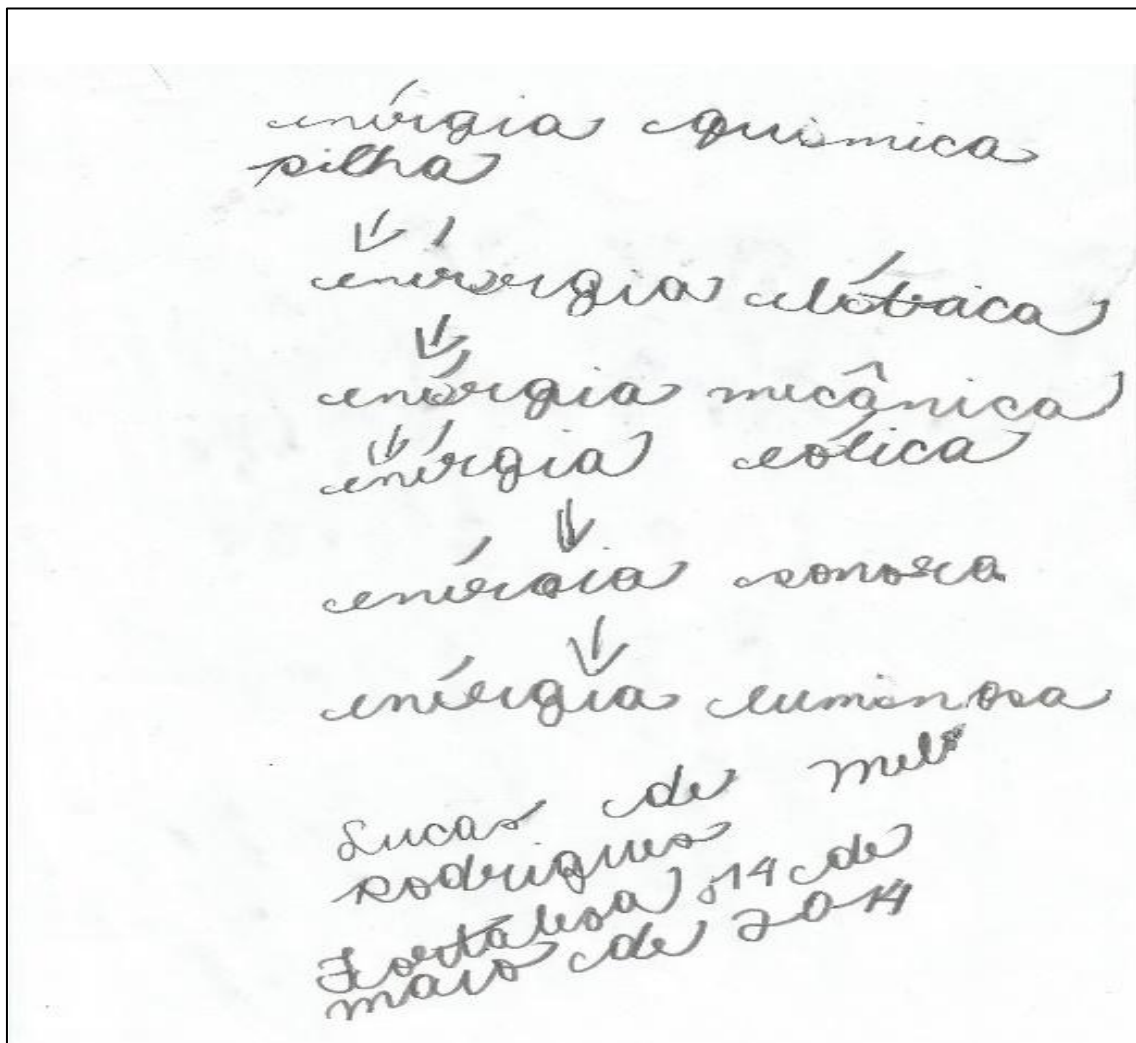 enérgia quimica
pilha
enérergia elétrica
enérgia mecânica
enérgia eólica
enérgia sonora
enérgia luminosa
Lucas de melo
rodrigues
Fortaleza, 14 de
maio de 2014